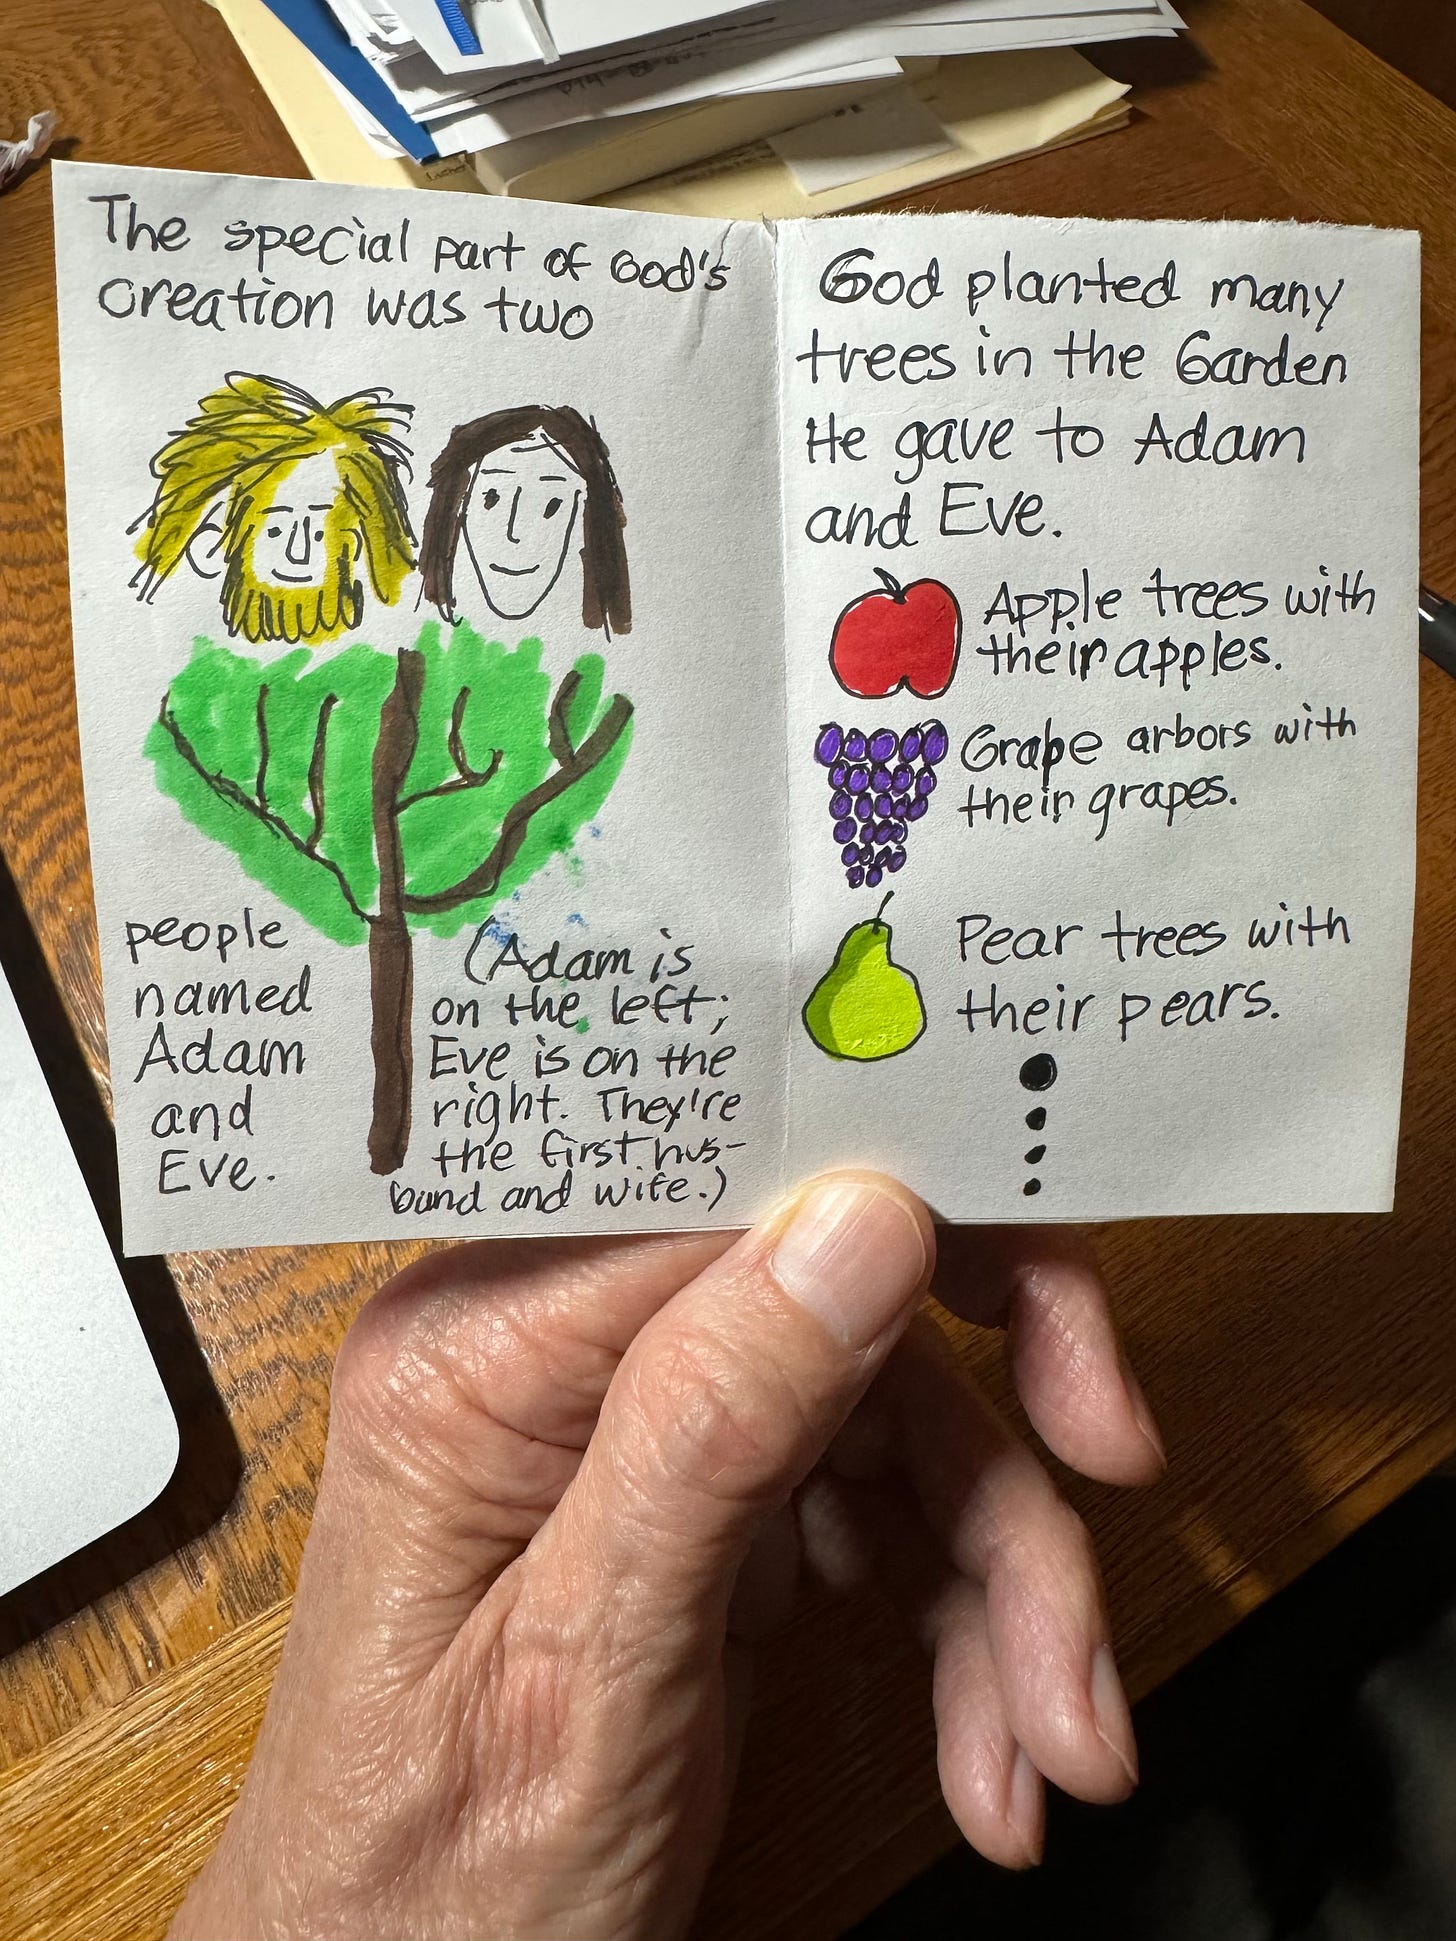 The special part of God's
creation was two
people
named
Adam
and
Eve.
(Adam is
on the left;
Eve is on the
right. They're
the first hus-
band and wife.)
God planted many
trees in the Garden
He gave to Adam
and Eve.
Apple trees with
their apples.
Grape arbors with
their grapes.
Pear trees with
their pears.